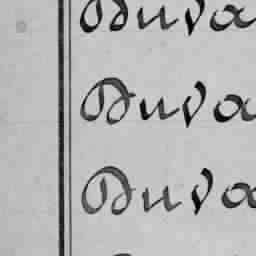 Duva
Duva
Duva